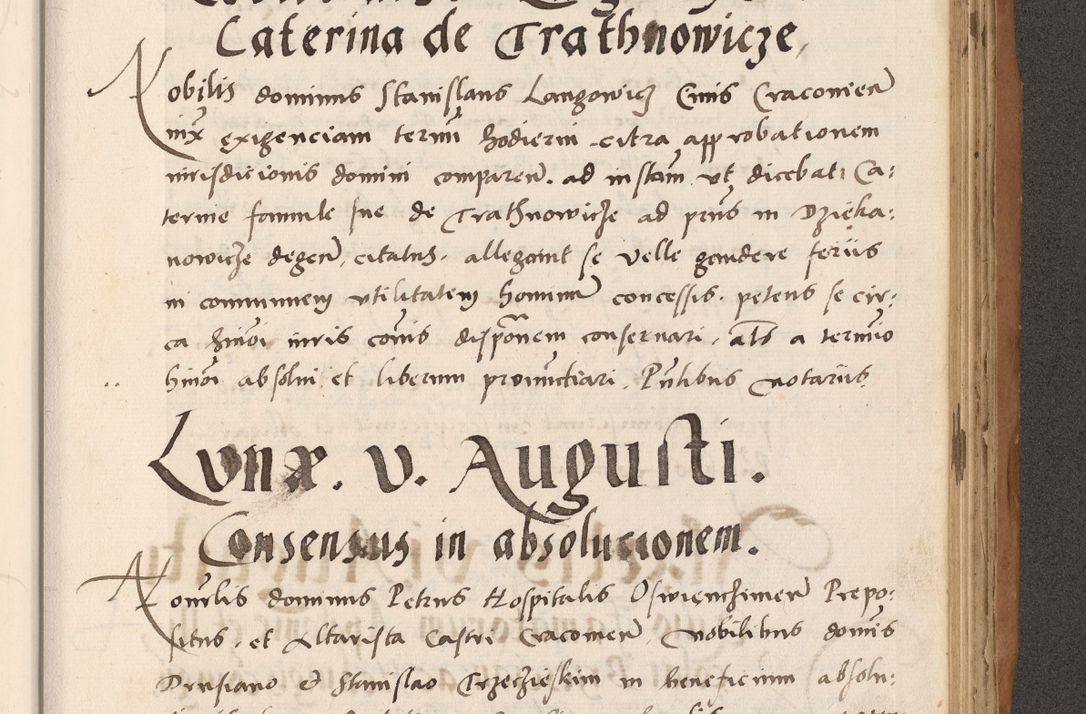 Caterina de Trathnowicze,
Nobilis dominus Stanislaus Langowicz Civis Cracovien
iux exigenciam termi hodierni citra approbationem
iurisdicionis domini comparen. ad instam ut dicebat, Ca:
terine famule sue de Trathnowicze ad pns in Dzieka:
nowicze degen, citatus, allegavit se velle gaudere feriis
in communem utilitatem hominum concessis. petens se cir:
ca hmoi iuris cois disponem conservari, als a termio
hmoi absolvi et liberum pronunctiari. Pntibus notariis.
Lunæ. v. Augusti.
Consensus in absolucionem.
Honorlis dominus Petrus Hospitalis Oswienczimen Prepo:
situs, et Altarista Castri Cracovien, nobilibus domis
Drusiano et Stanislao Trzecieskim in beneficium absolu: